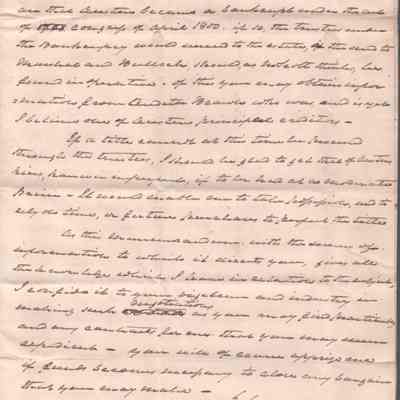 and that Austin became a bankrupt under the act
of congress of April 1800. if so, the trustees under
the Bankruptcy would succeed to the estates, if the deed to
Marshall and should, as
found in operative - of this you may obtain infor
mation from who was and is yet
I believe one of Austins principal creditors -
If a title cannot at this time be procured
through the trustees, I should be glad to get that of
if to be had at a moderate
It would enable me to take possession, and to
rely on time, or future purchases to perfect the title
As this memorandum, with the sources of
information to which it directs you, gives all
the knowledge which I have in relation to the subject,
I confide it to your vigilance and industry in
making such as you may find practicable
and any contract for me that you may deem
expedient - You will of course apprise me
if funds become necessary to close any bargain
that you may make -